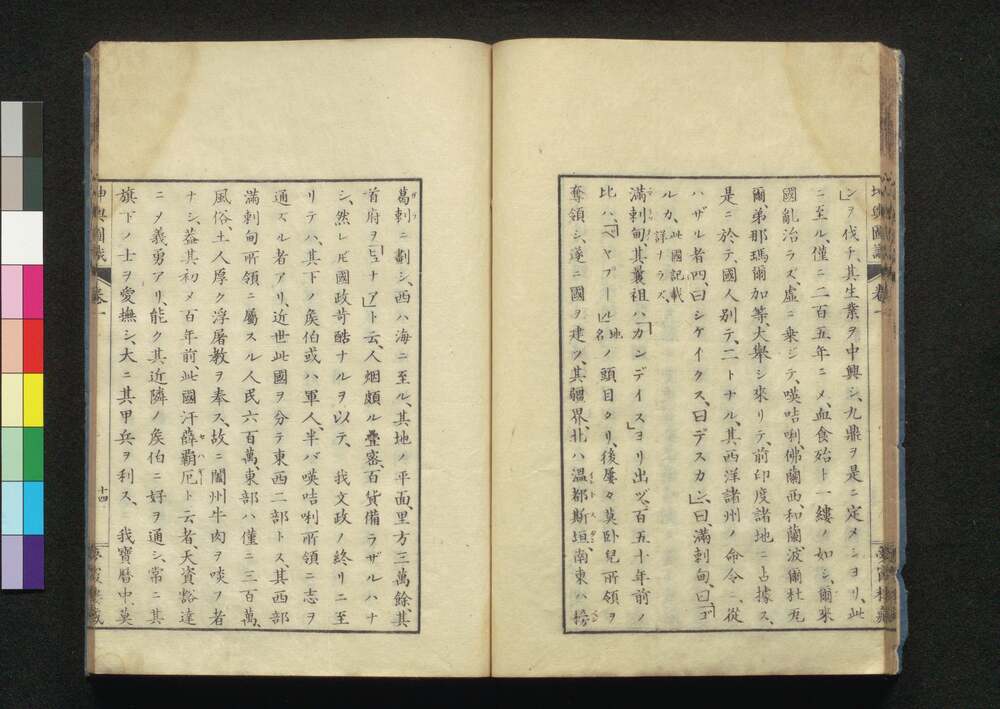 坤輿圖識 卷一
ン」ヲ伐チ、其生業ヲ中興シ、九鼎ヲ是ニ定メシヨリ、此
ニ至ル、僅ニ二百五年ニメ、血食殆ト一縷ノ如シ、爾來
國亂治ラズ、虛ニ乗ジテ、暎咭唎、佛蘭西、和蘭、波爾杜瓦
爾、弟那瑪爾加等、大擧シ來リテ、前印度諸地ニ占據ス、
是ニ於テ、國人別テ、二トナル、其西洋諸州ノ命令ニ從
ハザル者四、曰シケイクス、曰デスカ」シ、曰滿剌甸、曰「ゴ
ルカ、此國記載詳ナラズ、
滿剌甸、其曩祖ハ「カンデイス」ヨリ出ヅ、百五十年前ノ
比ハ、「ヤプール」地名ノ頭目タリ、後屢々莫卧兒所領ヲ
奪領シ、遂ニ國ヲ建ツ、其疆界、北ハ温都斯垣、南東ハ榜
葛剌ニ劃シ、西ハ海ニ至ル、其地ノ平面、里方三萬餘、其
首府ヲ「ヒュナア」ト云、人烟頗ル疊密、百貨備ラザルハナ
シ、然レ𪜈國政苛酷ナルヲ以テ、 我文政ノ終リニ至
リテハ、其下ノ矦伯或ハ軍人、半バ暎咭唎所領ニ志ヲ
通ズル者アリ、近世此國ヲ分テ東西二部トス、其西部
滿剌甸所領ニ屬スル人民六百萬、東部ハ僅ニ三百萬、
風俗、土人厚ク浮屠教ヲ奉ス、故ニ闔州牛肉ヲ啖フ者
ナシ、葢其初メ百年前、此國汗薛覇厄ト云者、天資豁達
ニメ義勇アリ、能ク其近隣ノ矦伯ニ好ヲ通シ、常ニ其
旗下ノ士ヲ愛撫シ、大ニ其甲兵ヲ利ス、 我寶暦中、莫
坤輿圖識 卷一 十四